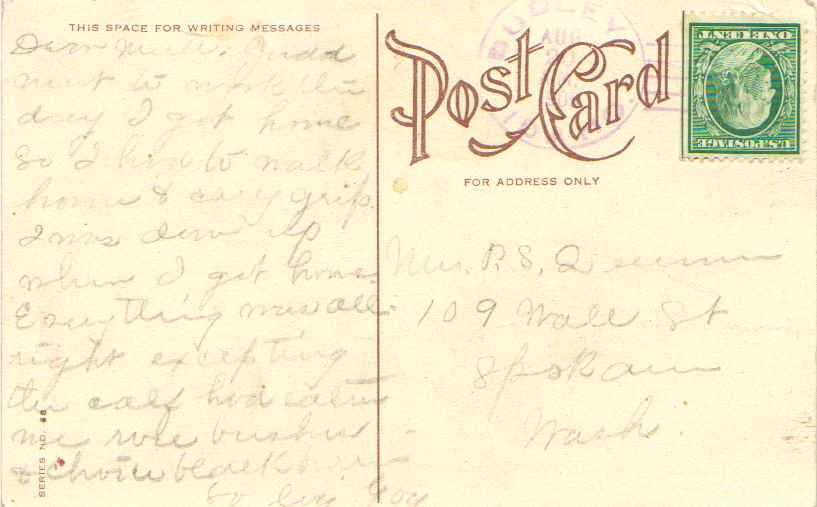 THIS SPACE FOR WRITING MESSAGES
Dear
went to the
day I got home
So I had to walk
home & carry grip.
I was done up
when I got home.
Everything was all
right excepting
the calf had eaten
my rose bushes
& choice blackberry
So long Joy
SERIES NO. 68
Post Card
FOR ADDRESS ONLY
DUDLEY
AUG
20
U.S. POSTAGE
ONE CENT
Mrs. P. S.
109 Wall St
Spokane
Wash.